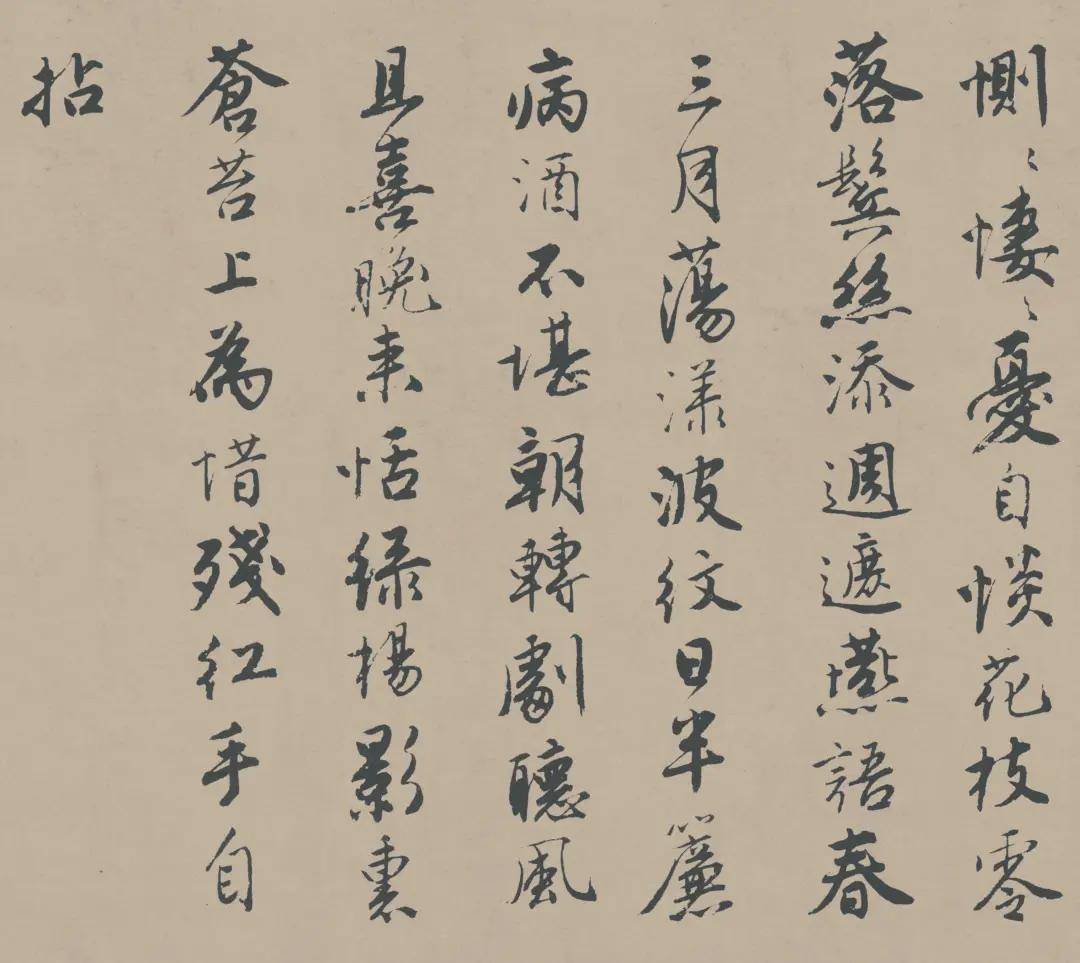 惻〻悽〻憂自惔花枝零
落鬢絲添週遮燕語春
三月蕩漾波紋日半簾
病酒不堪朝轉劇聽風
且喜晚来恬緑楊影裏
蒼苔上為惜殘紅手自
拈